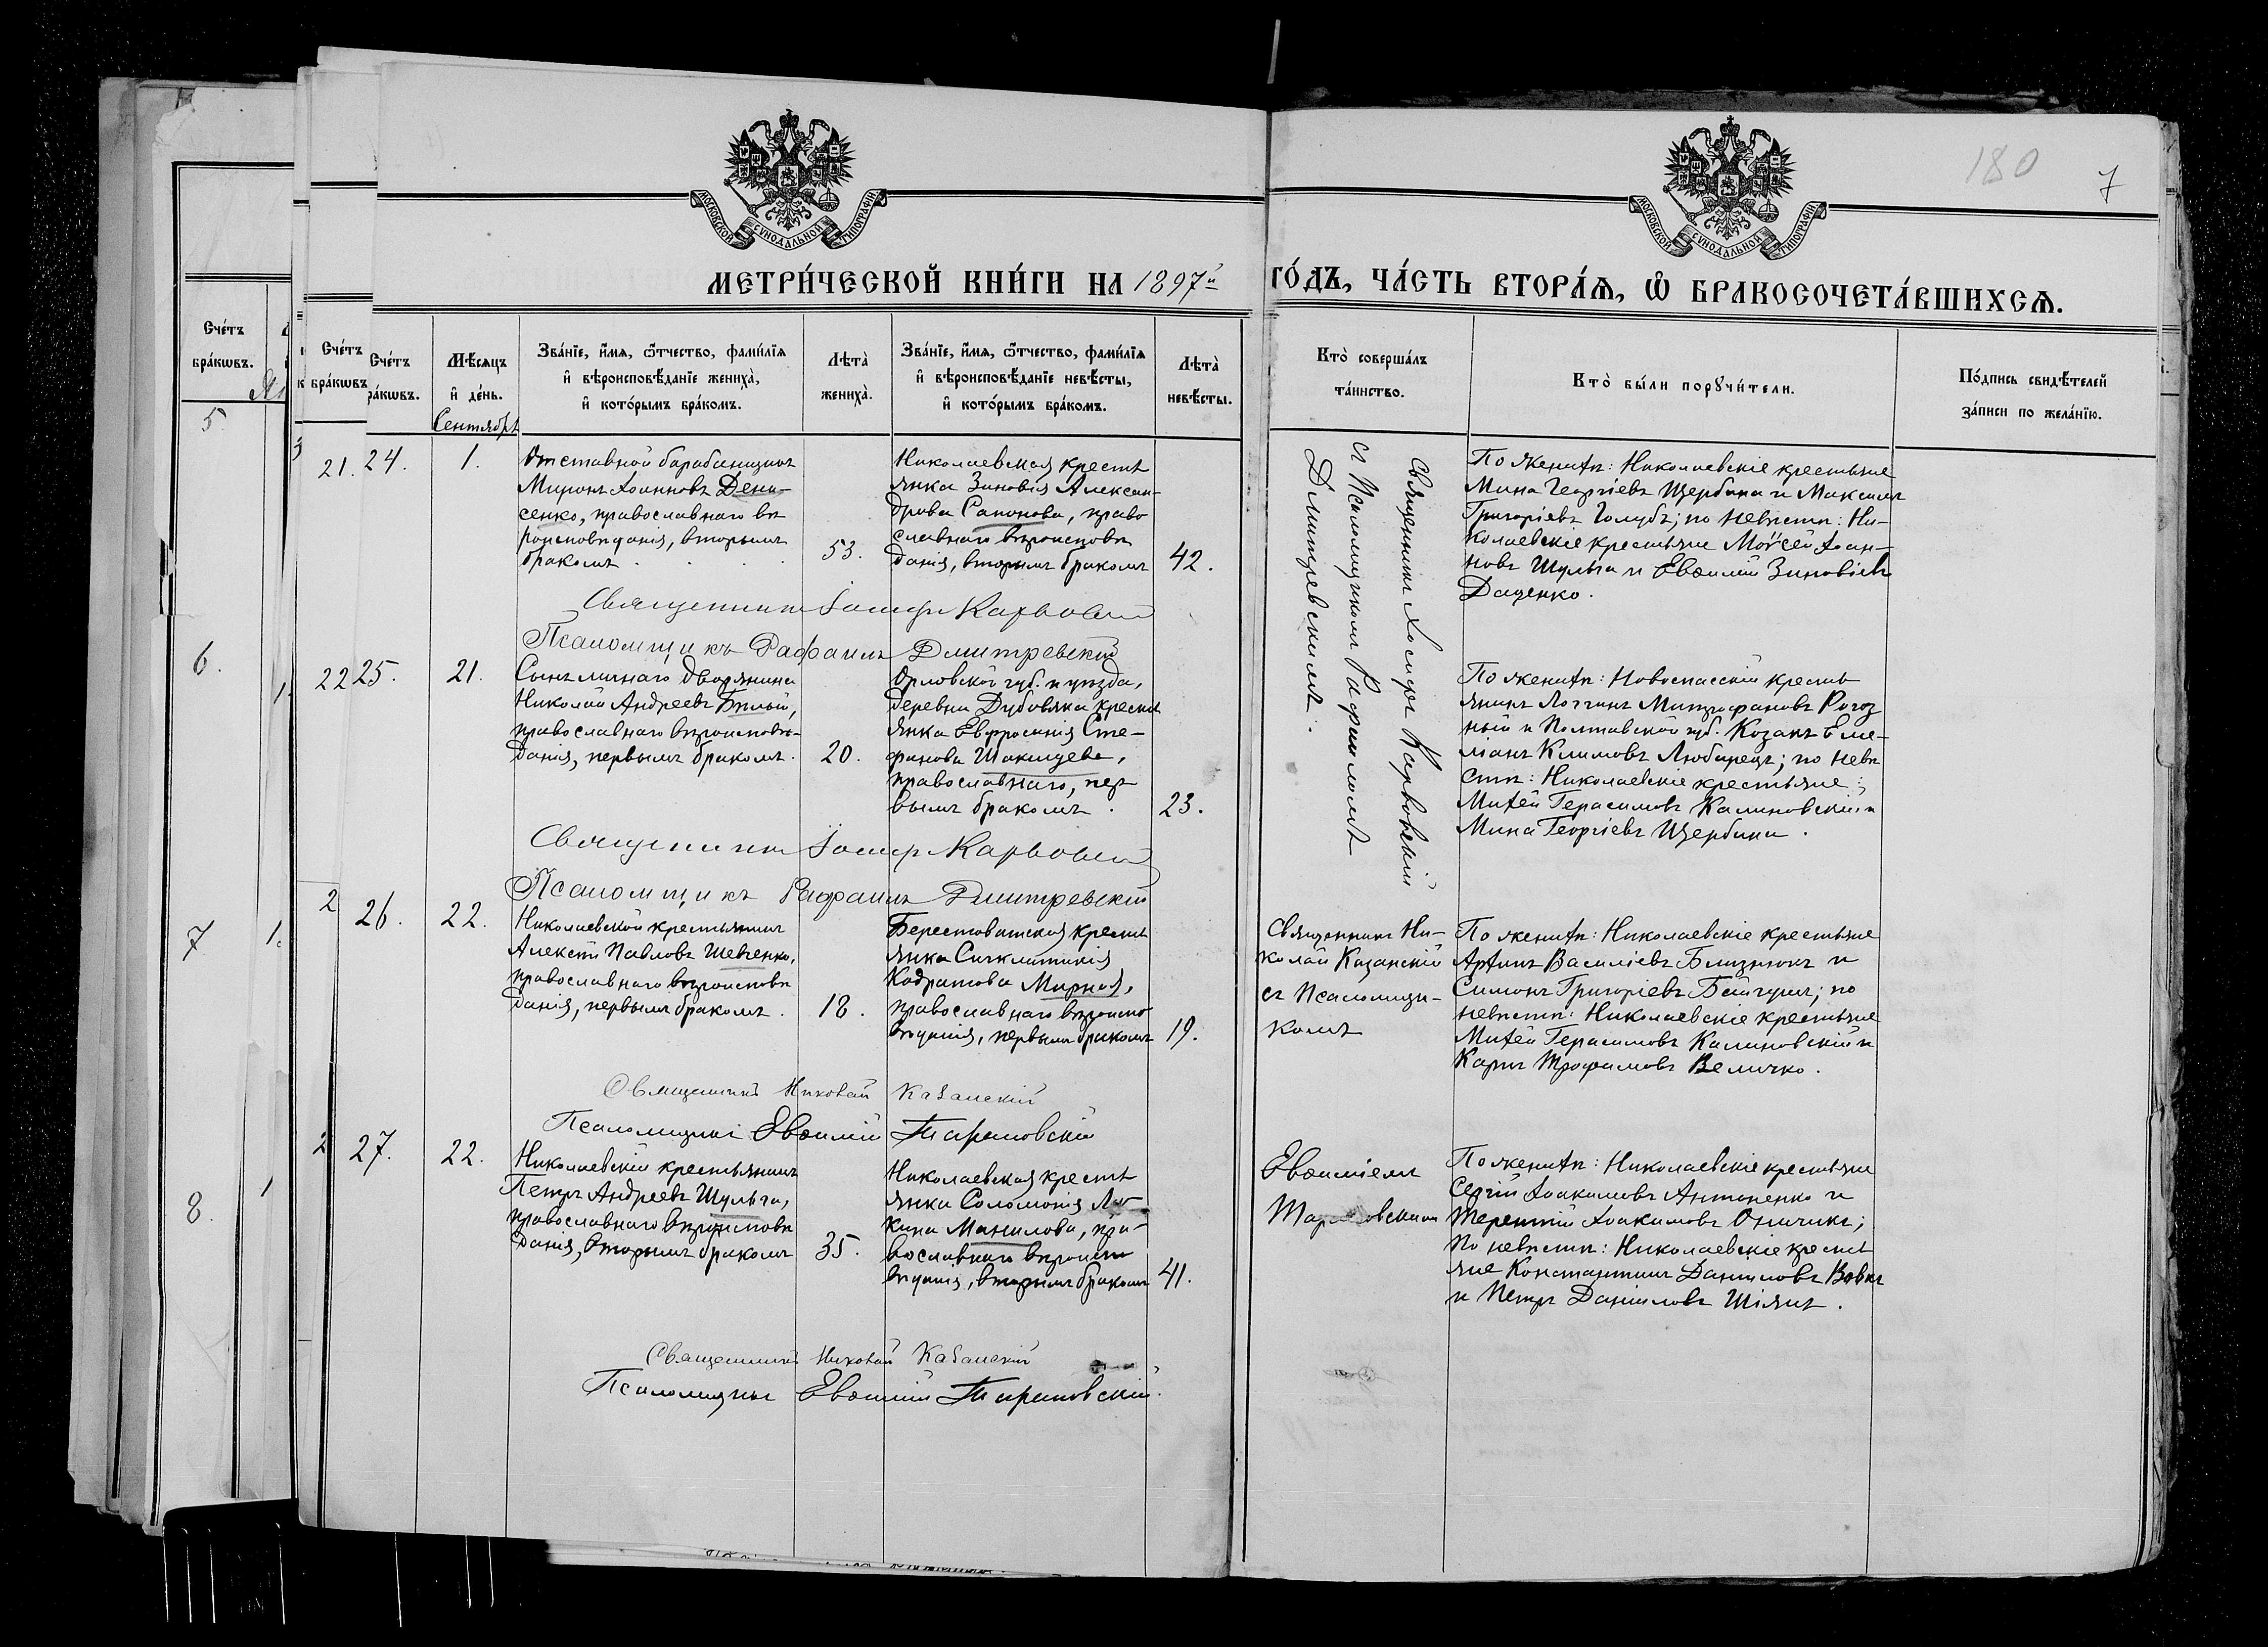 180
7
МОСКОВСКОЙ СѴНОДАЛЬНОЙ ТИПОГРАФІИ
МОСКОВСКОЙ СѴНОДАЛЬНОЙ ТИПОГРАФІИ
МЕТРИ́ЧЕСКОЙ КНИ́ГИ НА 1897й
ГО́ДЪ, ЧА́СТЬ ВТОРА́Ѧ, Ѡ҆ БРАКОСОЧЕТА́ВШИХСѦ.
Сче́тъ
бра́кѡвъ.
Сче́тъ
бра́кѡвъ
Сче́тъ
ра́кѡвъ.
Мѣ́сяцъ
и҆ де́нь.
Сентябрь
Зва́нїе, и҆́мя, ѻ҆́тчество, фами́лїя
и҆ вѣроисповѣ́данїе жениха̀,
и҆ кото́рымъ бра́комъ.
Лѣта̀
жениха̀.
Зва́нїе, и҆́мя, ѻ҆́тчество, фами́лїя
и҆ вѣроисповѣ́данїе невѣ́сты,
и҆ кото́рымъ бра́комъ.
Лѣта̀
невѣ́сты.
Кто̀ соверша́лъ
та́инство.
Кто̀ бы́ли порꙋчи́тели.
По́дпись свидѣ́телей
за́писи по жела́нїю.
5
6.
7
8.
21.
24.
1.
Отставной барабанщикъ
Миронъ Іоанновъ Дени-
сенко, православнаго вѣ
роисповѣданія, вторымъ
бракомъ
53.
Николаевская кресть
янка Зиновія Алексан-
дрова Сапонова, право
славнаго вѣроисповѣ
данія, вторымъ бракомъ
42.
Священникомъ Іосифомъ Карповскій
съ Псаломщикомъ Рафаиломъ
Дмитревскимъ.
По женихѣ: Николаевскіе крестьяне
Мина Георгіевъ Щербина и Максимъ
Григоріевъ Голубъ; по невѣстѣ: Ни-
колаевскіе крестьяне Моѵсей Іоан-
новъ Шульга и Евѳимій Зиновіевъ
Даценко.
Священникъ Іосифъ Карповскій
Псаломщикъ Рафаилъ Дмитревскій
22
25.
21.
Сынъ личнаго дворянина
Николай Андреевъ Бѣлый,
православнаго вѣроисповѣ-
данія, первымъ бракомъ.
20.
Орловской губ. и уѣзда,
деревни Дубовяка кресть
янка Евфросинія Сте-
фанова Шакицева,
православнаго, пер
вымъ бракомъ.
23.
По женихѣ: Новоспасскій кресть
янинъ Логгинъ Митрофановъ Рогоз
ный и Полтавской губ. Козакъ Еме-
ліанъ Климовъ Любарецъ; по невѣ
стѣ: Николаевскіе крестьяне:
Миѳей Герасимовъ Калиновскій и
Мина Георгіевъ Щербина.
Священникъ Іосифъ Карповскій
Псаломщикъ Рафаилъ Дмитревскій
2
26.
22.
Николаевской крестьянинъ
Алексѣй Павловъ Шевченко,
православнаго вѣроисповѣ
данія, первымъ бракомъ.
18.
Берестоватская кресть
янка Сигклитикія
Кодратова Мирная,
православнаго вѣроиспо
вѣданія, первымъ бракомъ
19.
Священникъ Ни-
колай Казанскій
съ Псаломщи-
комъ
По женихѣ: Николаевскіе крестьяне
Василіевъ Близнюкъ и
Симонъ Григоріевъ; по
невѣстѣ: Николаевскіе крестьяне
Миѳей Герасимовъ Калиновскій и
Карпъ Трофимовъ Величко.
Священникъ Николай Казанскій
Псаломщикъ Евѳимій Тарановскій
2
27.
22.
Николаевскій крестьянинъ
Петръ Андреевъ Шульга,
православнаго вѣроисповѣ
данія, вторымъ бракомъ
35.
Николаевская кресть
янка Соломонія Лу-
кина Манилова, пра-
вославнаго вѣроиспо
вѣданія, вторымъ бракомъ
41.
Евѳиміемъ
Тарановскимъ
По женихѣ: Николаевскіе крестьяне
Сергій Іоакимовъ Антоненко и
Терентій Іоакимовъ Оничикъ;
по невѣстѣ: Николаевскіе кресть
яне Константинъ Даниловъ Вовкъ
и Петръ Даніиловъ Шіянъ.
Священникъ Николай Казанскій
Псаломщикъ Евѳимій Тарановскій.